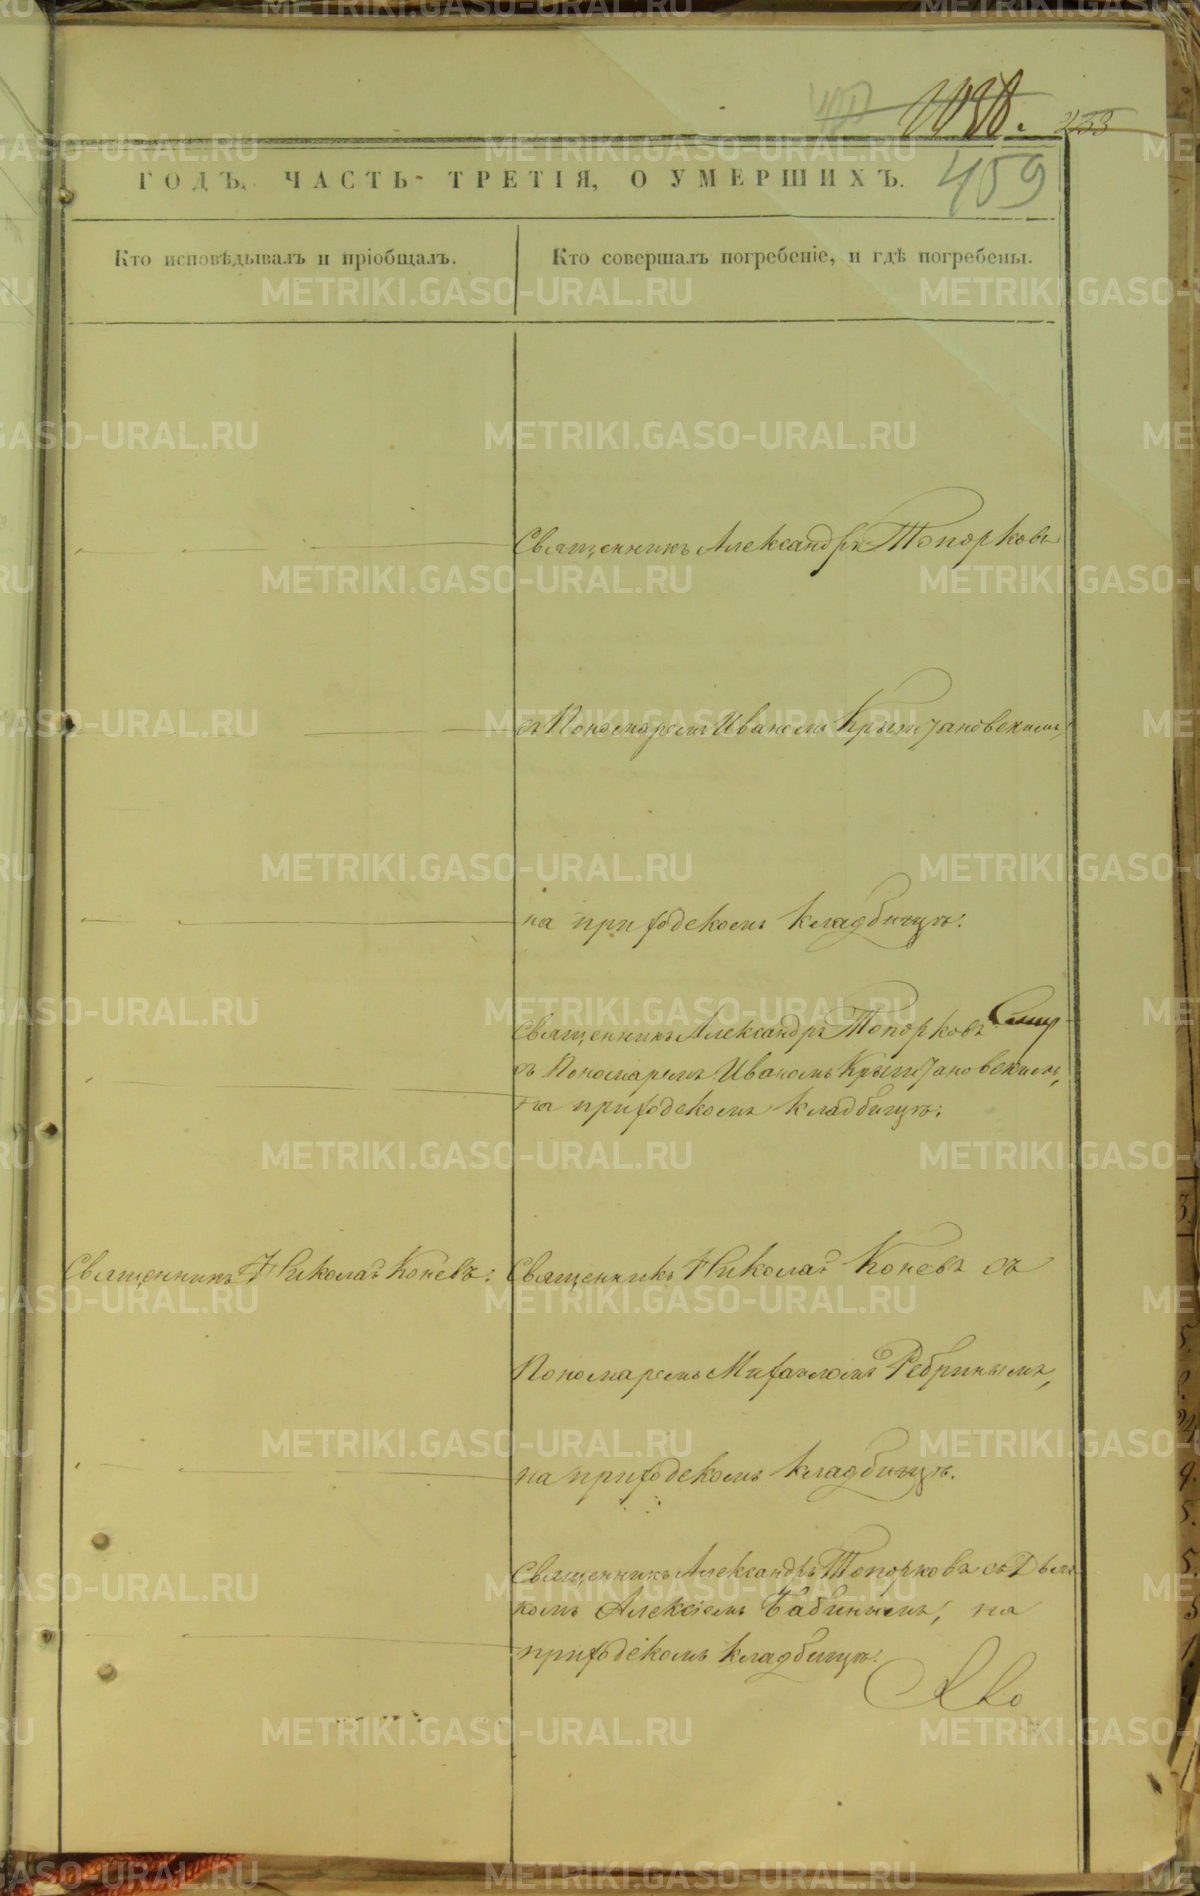 1038. 233
459
ГОДЪ, ЧАСТЬ ТРЕТІЯ, О УМЕРШИХЪ.
Кто исповѣдывалъ и пріобщалъ.
Кто совершалъ погребеніе, и гдѣ погребены.
Священникъ Александръ Топорковъ
съ Пономаремъ Иваномъ Крыжановскимъ,
на приходскомъ кладбищѣ.
Священникъ Александръ Топорковъ
съ Пономаремъ Иваномъ Крыжановскимъ,
на приходскомъ кладбищѣ.
Священникъ Николай Коневъ:
Священникъ Николай Коневъ съ
Пономаремъ Михаиломъ Ребринымъ,
на приходскомъ кладбищѣ.
Священникъ Александръ Топорковъ съ Дьяч
комъ Алексіемъ Бабинымъ, на
приходскомъ кладбищѣ.
METRIKI.GASO-URAL.RU